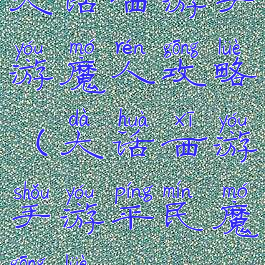 话西游
yóu mó rén gōng lüè
游魔人攻略
dà huà xī yóu
（大话西游
shǒu yóu píng mín mó
手游平民魔
gōng lüè